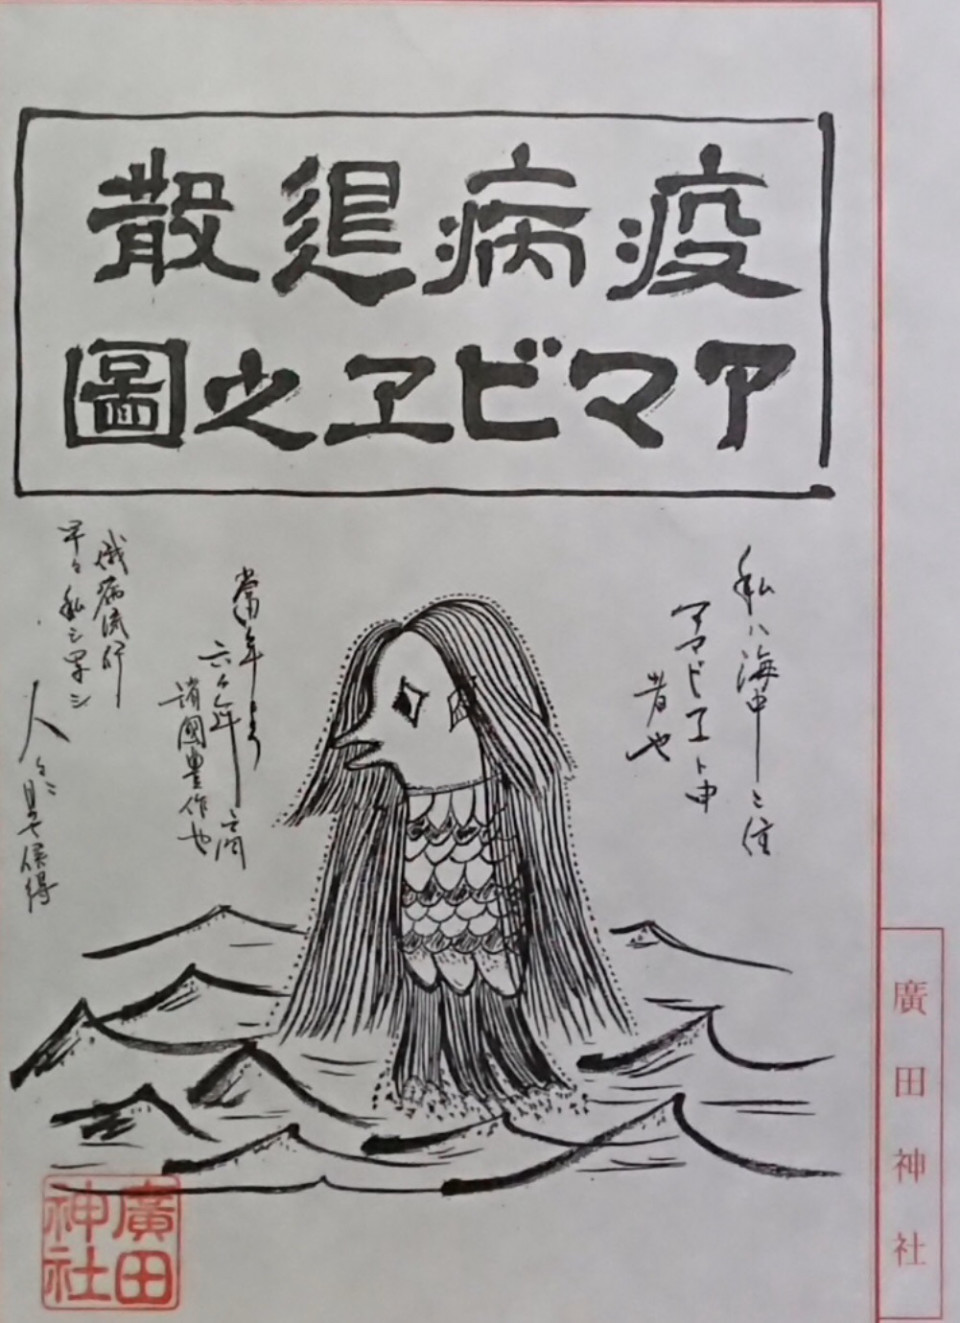 疫病退散
アマビヱ之圖
私ハ海中ニ住
アマビエト申
者也
當年より
六ヶ年之間
諸國豊作也
併病流行
早々私シ写シ
人々ニ見セ候得
廣田神社
廣田
神社